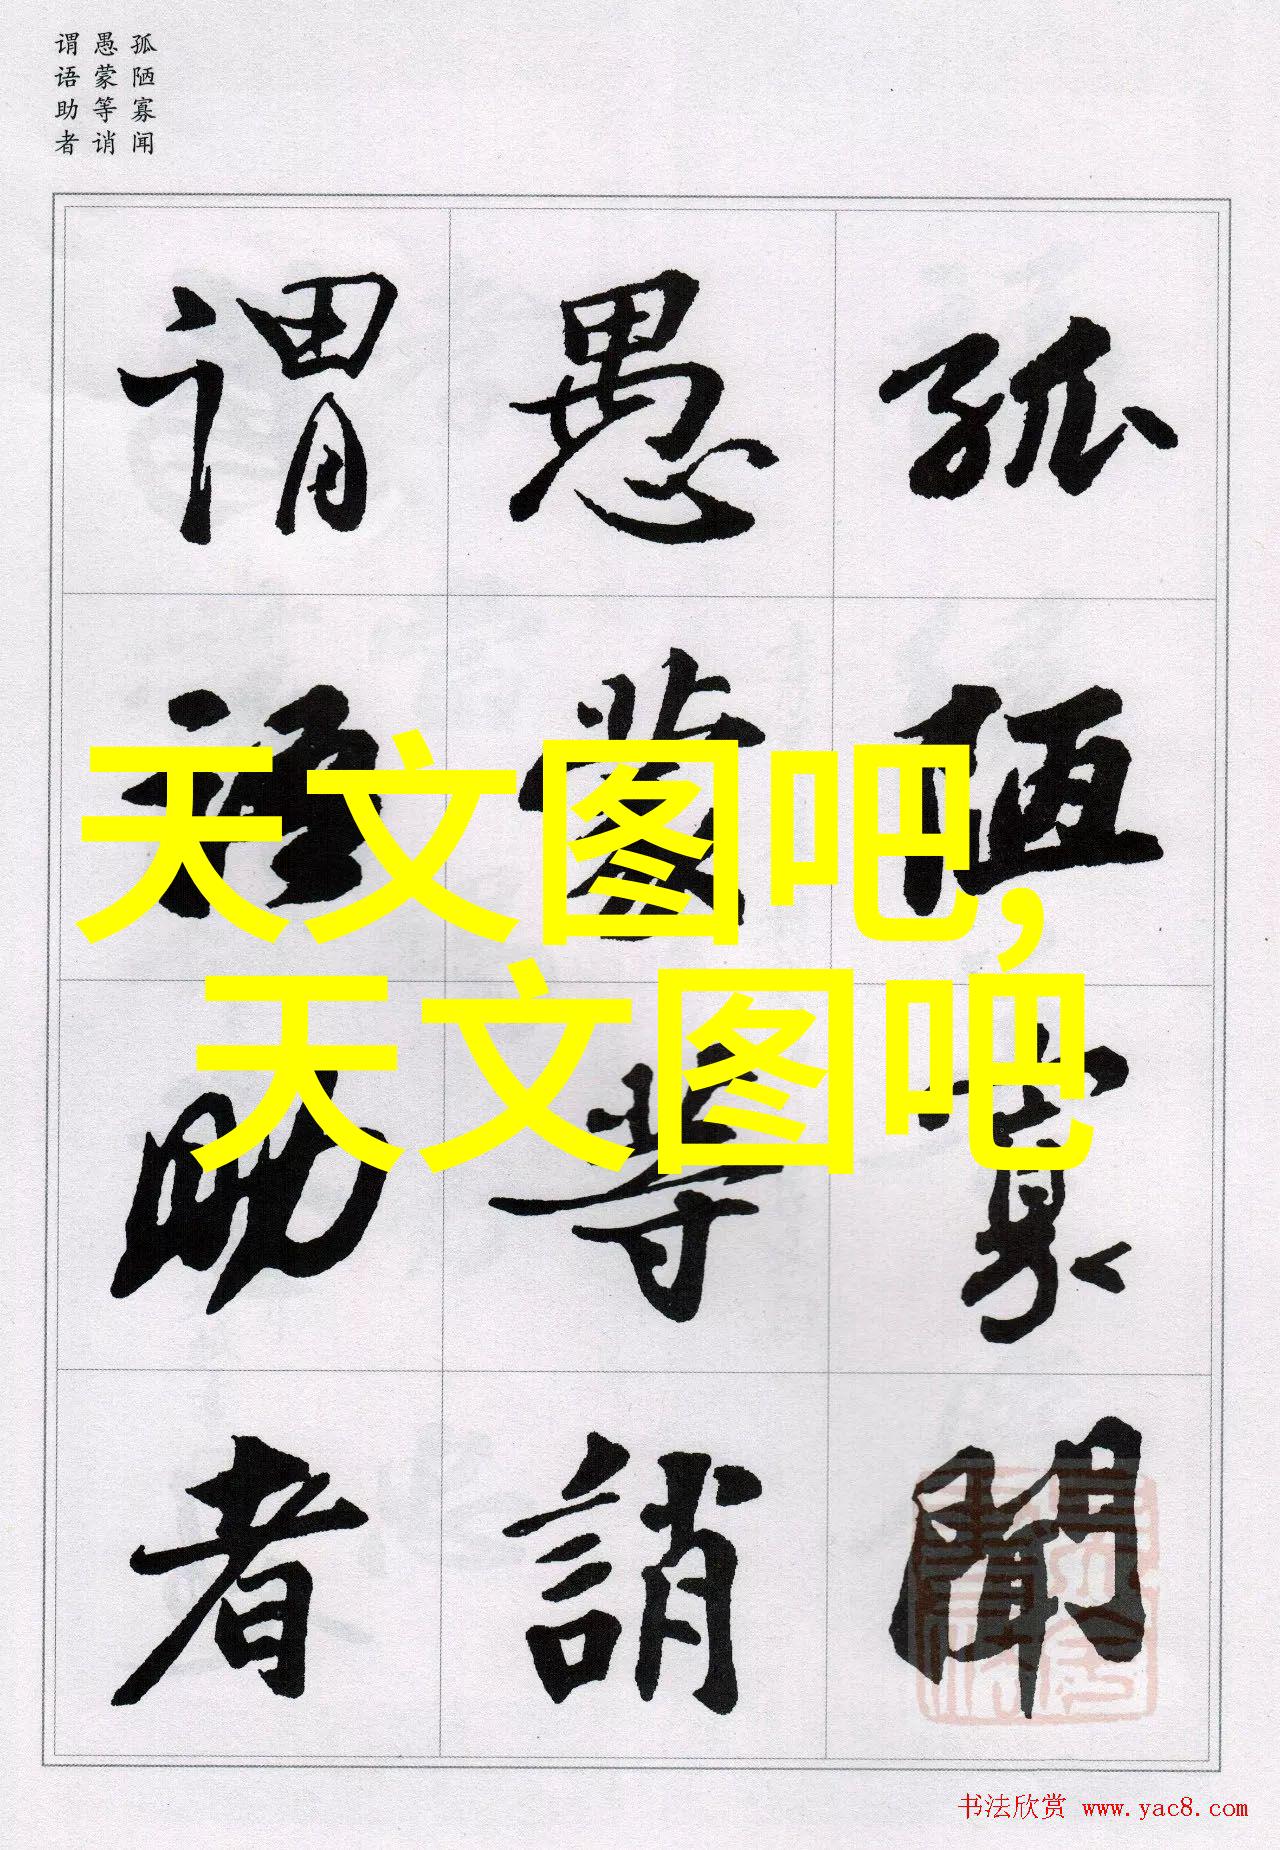 孤陋寡闻
愚蒙等诮
谓语助者
孤陋寡聞
愚蒙等誚
谓語助者
天文图吧,
天文图吧
书法欣赏 www.yac8.com